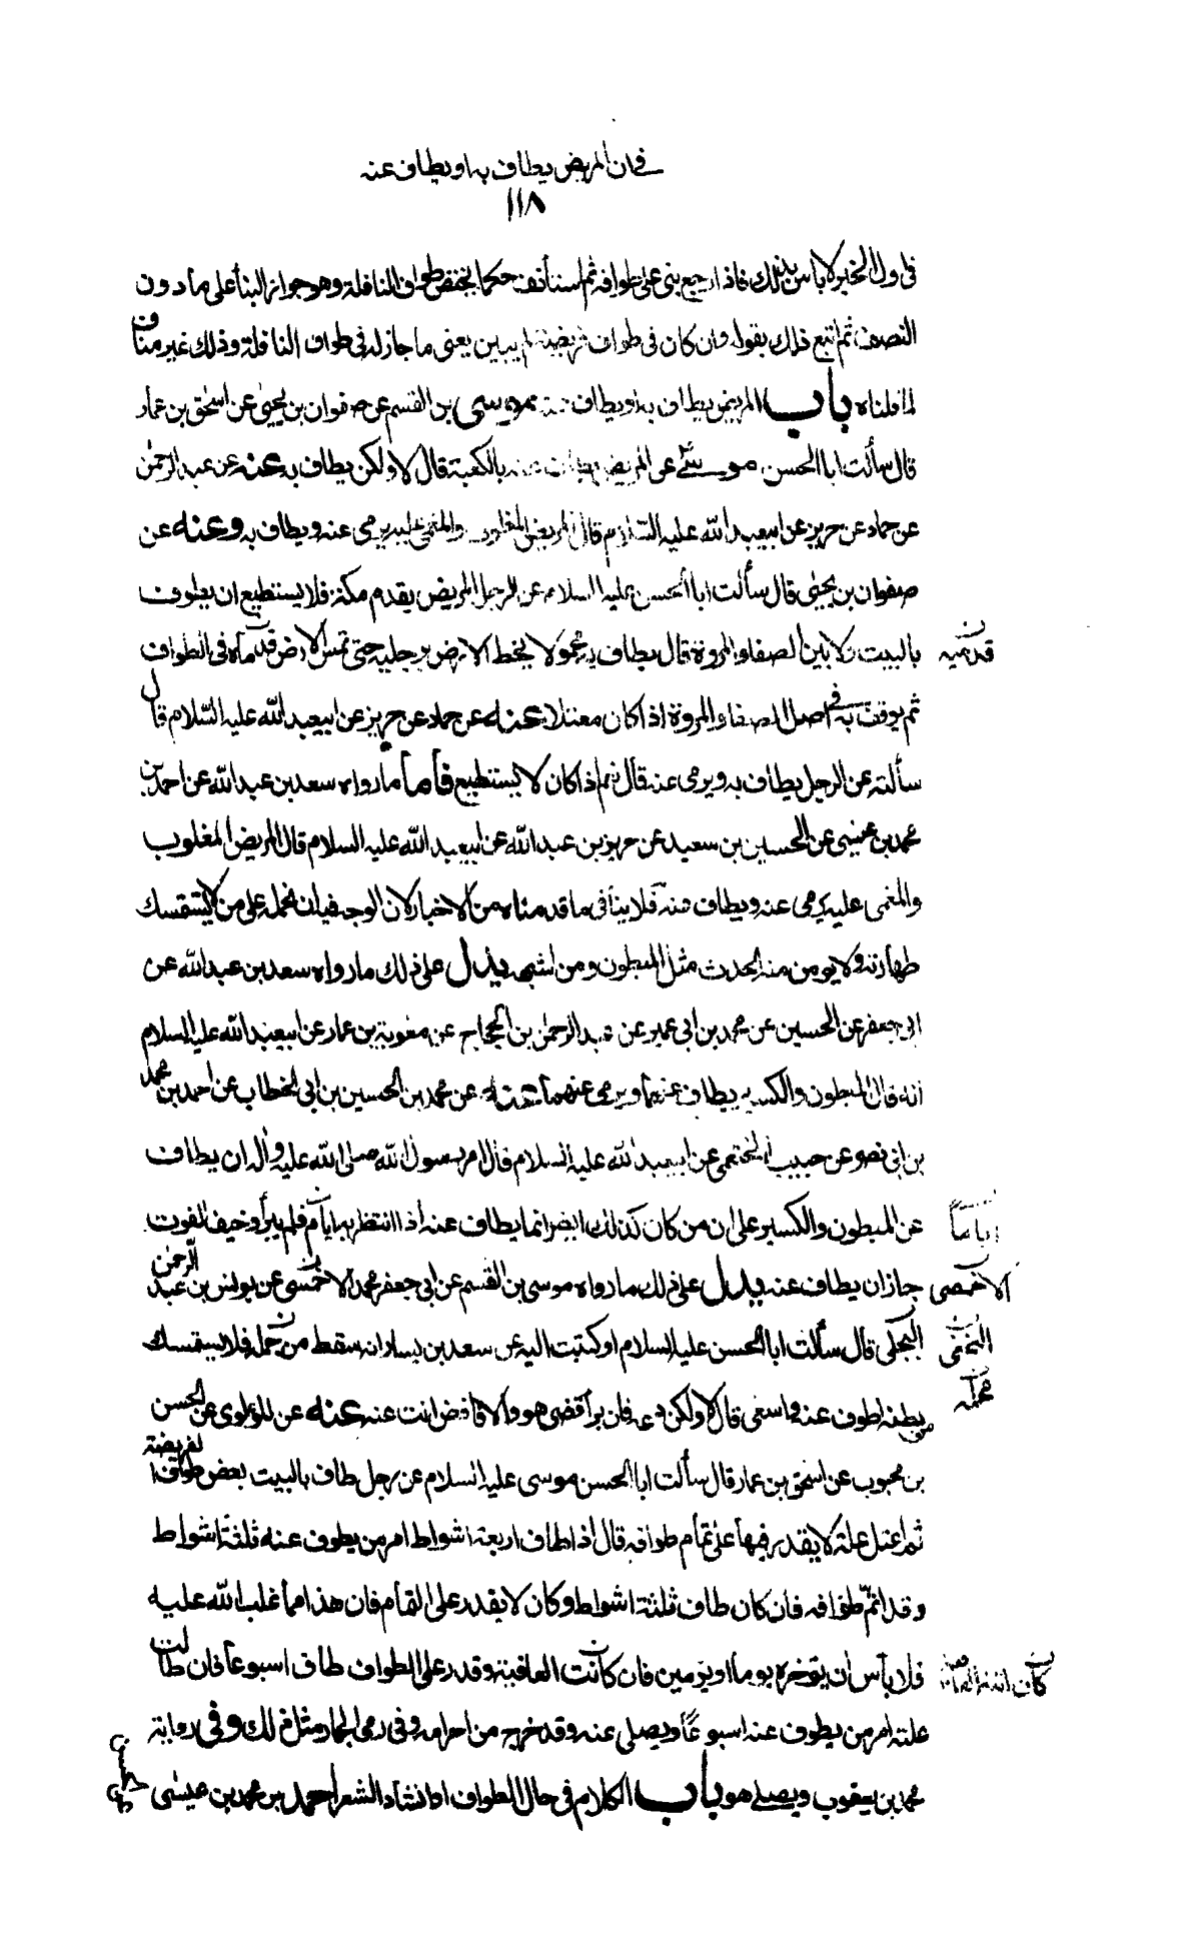 في ان المريض يطاف به او يطاف عنه
١١٨
في اول الخبر لا باس بذلك فاذا رجع بنى على طوافه ثم استأنف حكما يختص طواف النافلة وهو جواز البنأ على ما دون
النصف ثم اتبع ذلك بقوله وان كان في طواف فريضة لم يبين يعنى ما جاز له في طواف النافلة وذلك غير مناف
لما قلناه باب المريض يطاف به او يطاف عنه موسى بن القسم عن صفوان بن يحيى عن اسحق بن عمار
قال سألت ابا الحسن موسى ع عن المريض يطاف عنه بالكعبة قال لا ولكن يطاف به عنه عن عبد الرحمن
عن حماد عن حريز عن ابيعبد الله عليه السلام قال المريض المغلوب والمغمى عليه يرمى عنه ويطاف به وعنه عن
صفوان بن يحيى قال سألت ابا الحسن عليه السلام عن الرجل المريض يقدم مكة فلا يستطيع ان يطوف
بالبيت ولا بين الصفا والمروة قال يطاف به محمولا يخط الارض برجليه حتى تمس الارض قدماه في الطواف
قدميه
ثم يوقف به في اصل الصفا والمروة اذا كان معتلا عنه عن حماد عن حريز عن ابيعبد الله عليه السلام قال
سألته عن الرجل يطاف به ويرمى عنه قال نعم اذا كان لا يستطيع فأما ما رواه سعد بن عبد الله عن احمد بن
محمد بن عيسى عن الحسين بن سعيد عن حريز بن عبد الله عن ابيعبد الله عليه السلام قال المريض المغلوب
والمغمى عليه يرمى عنه ويطاف عنه فلا ينافى ما قدمناه من الاخبار لان الوجه فيه ان نحمله على من لا يستمسك
طهارته ولا يومن منه الحدث مثل المبطون ومن اشبهه يدل على ذلك ما رواه سعد بن عبد الله عن
ابى جعفر عن الحسين عن محمد بن ابى عمير عن عبد الرحمن بن الحجاج عن معوية بن عمار عن ابيعبد الله عليه السلام
انه قال المبطون والكسير يطاف عنهما ويرمى عنهما عنه عن محمد بن الحسين بن ابى الخطاب عن احمد بن محمد
بن ابى نصر عن حبيب الخثعمى عن ابيعبد الله عليه السلام قال امر رسول الله صلى الله عليه واله ان يطاف
عن المبطون والكسير على ان من كان كذلك ايضا انما يطاف عنه اذا انتظر به ايام فلم يبرأ وخيف الفوت
اياما
جاز ان يطاف عنه يدل على ذلك ما رواه موسى بن القسم عن ابى جعفر محمد الاخمسى عن يونس بن عبد الرحمن
الاحمصى
البجلى قال سألت ابا الحسن عليه السلام او كتبت اليه عن سعد بن يسار انه سقط من جمله فلا يستمسك
محمله
بطنه اطوف عنه واسعى قال لا ولكن دعه فان برأ قضى هو والا فاقض انت عنه عنه عن اللؤلوى عن الحسن
بن محبوب عن اسحق بن عمار قال سألت ابا الحسن موسى عليه السلام عن رجل طاف بالبيت بعض طوافه الفريضة
ثم اعتل علة لا يقدر فيها على تمام طوافه قال اذا طاف اربعة اشواط امر من يطوف عنه ثلثة اشواط
وقد اتم طوافه فان كان طاف ثلثة اشواط وكان لا يقدر على التمام فان هذا مما غلب الله عليه
فلا بأس ان يؤخره يوما او يومين فان كانت العافية وقدر على الطواف طاف اسبوعا فان طالت
كان
علته امر من يطوف عنه اسبوعا ويصلى عنه وقد خرج من احرامه وفى رمى الجمار مثل ذلك وفى رواية
محمد بن يعقوب ويصلى هو باب الكلام في حال الطواف او انشاد الشعر احمد بن محمد بن عيسى